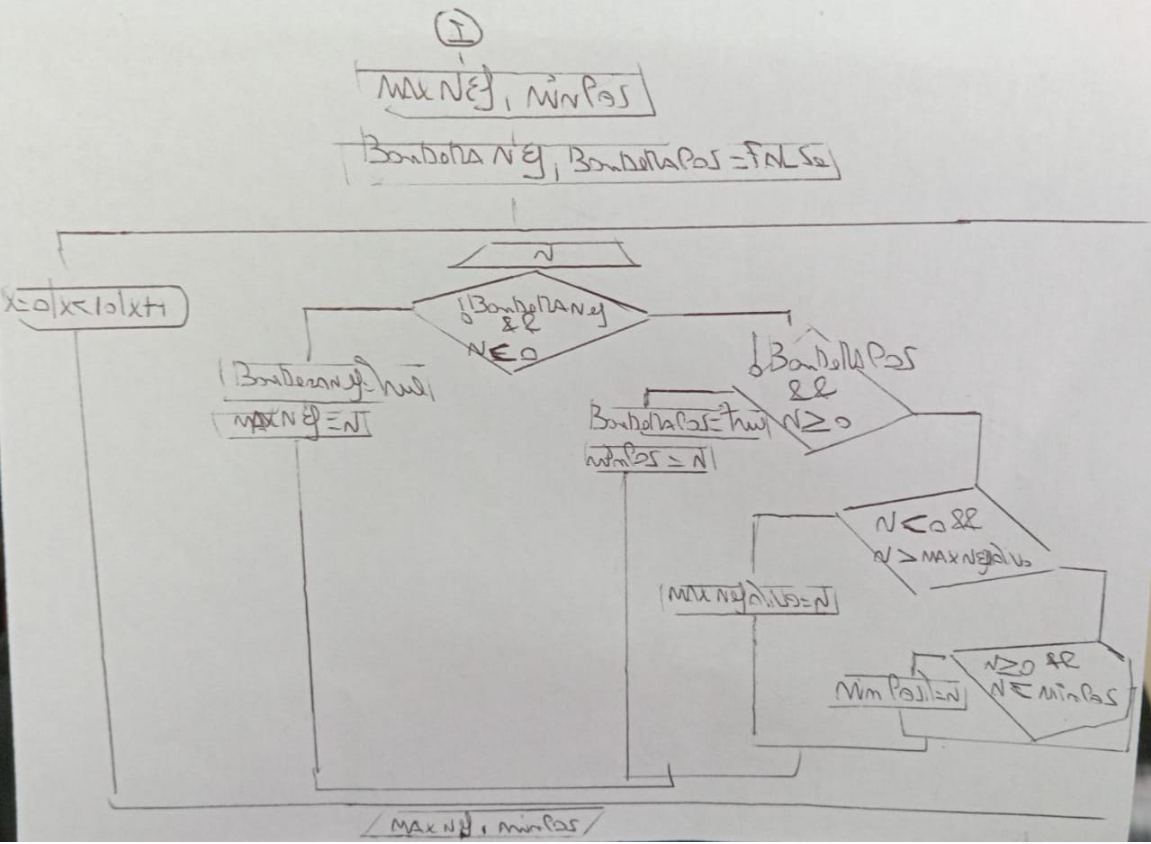 I
MAXNEg, MinPos
BanDeraNEg, BanDeraPos=FALSe
N
x=0|x<10|x++
!BanDeraNeg
&&
N<0
BanDeraNeg=true
MAXNEg=N
!BanDeraPos
&&
N≥0
BanDeraPos=true
minPos=N
N<0 &&
N>MAXNEgativo
MAXNEgativo=N
N≥0 &&
N<MinPos
MinPos=N
MAXNEg, minPos